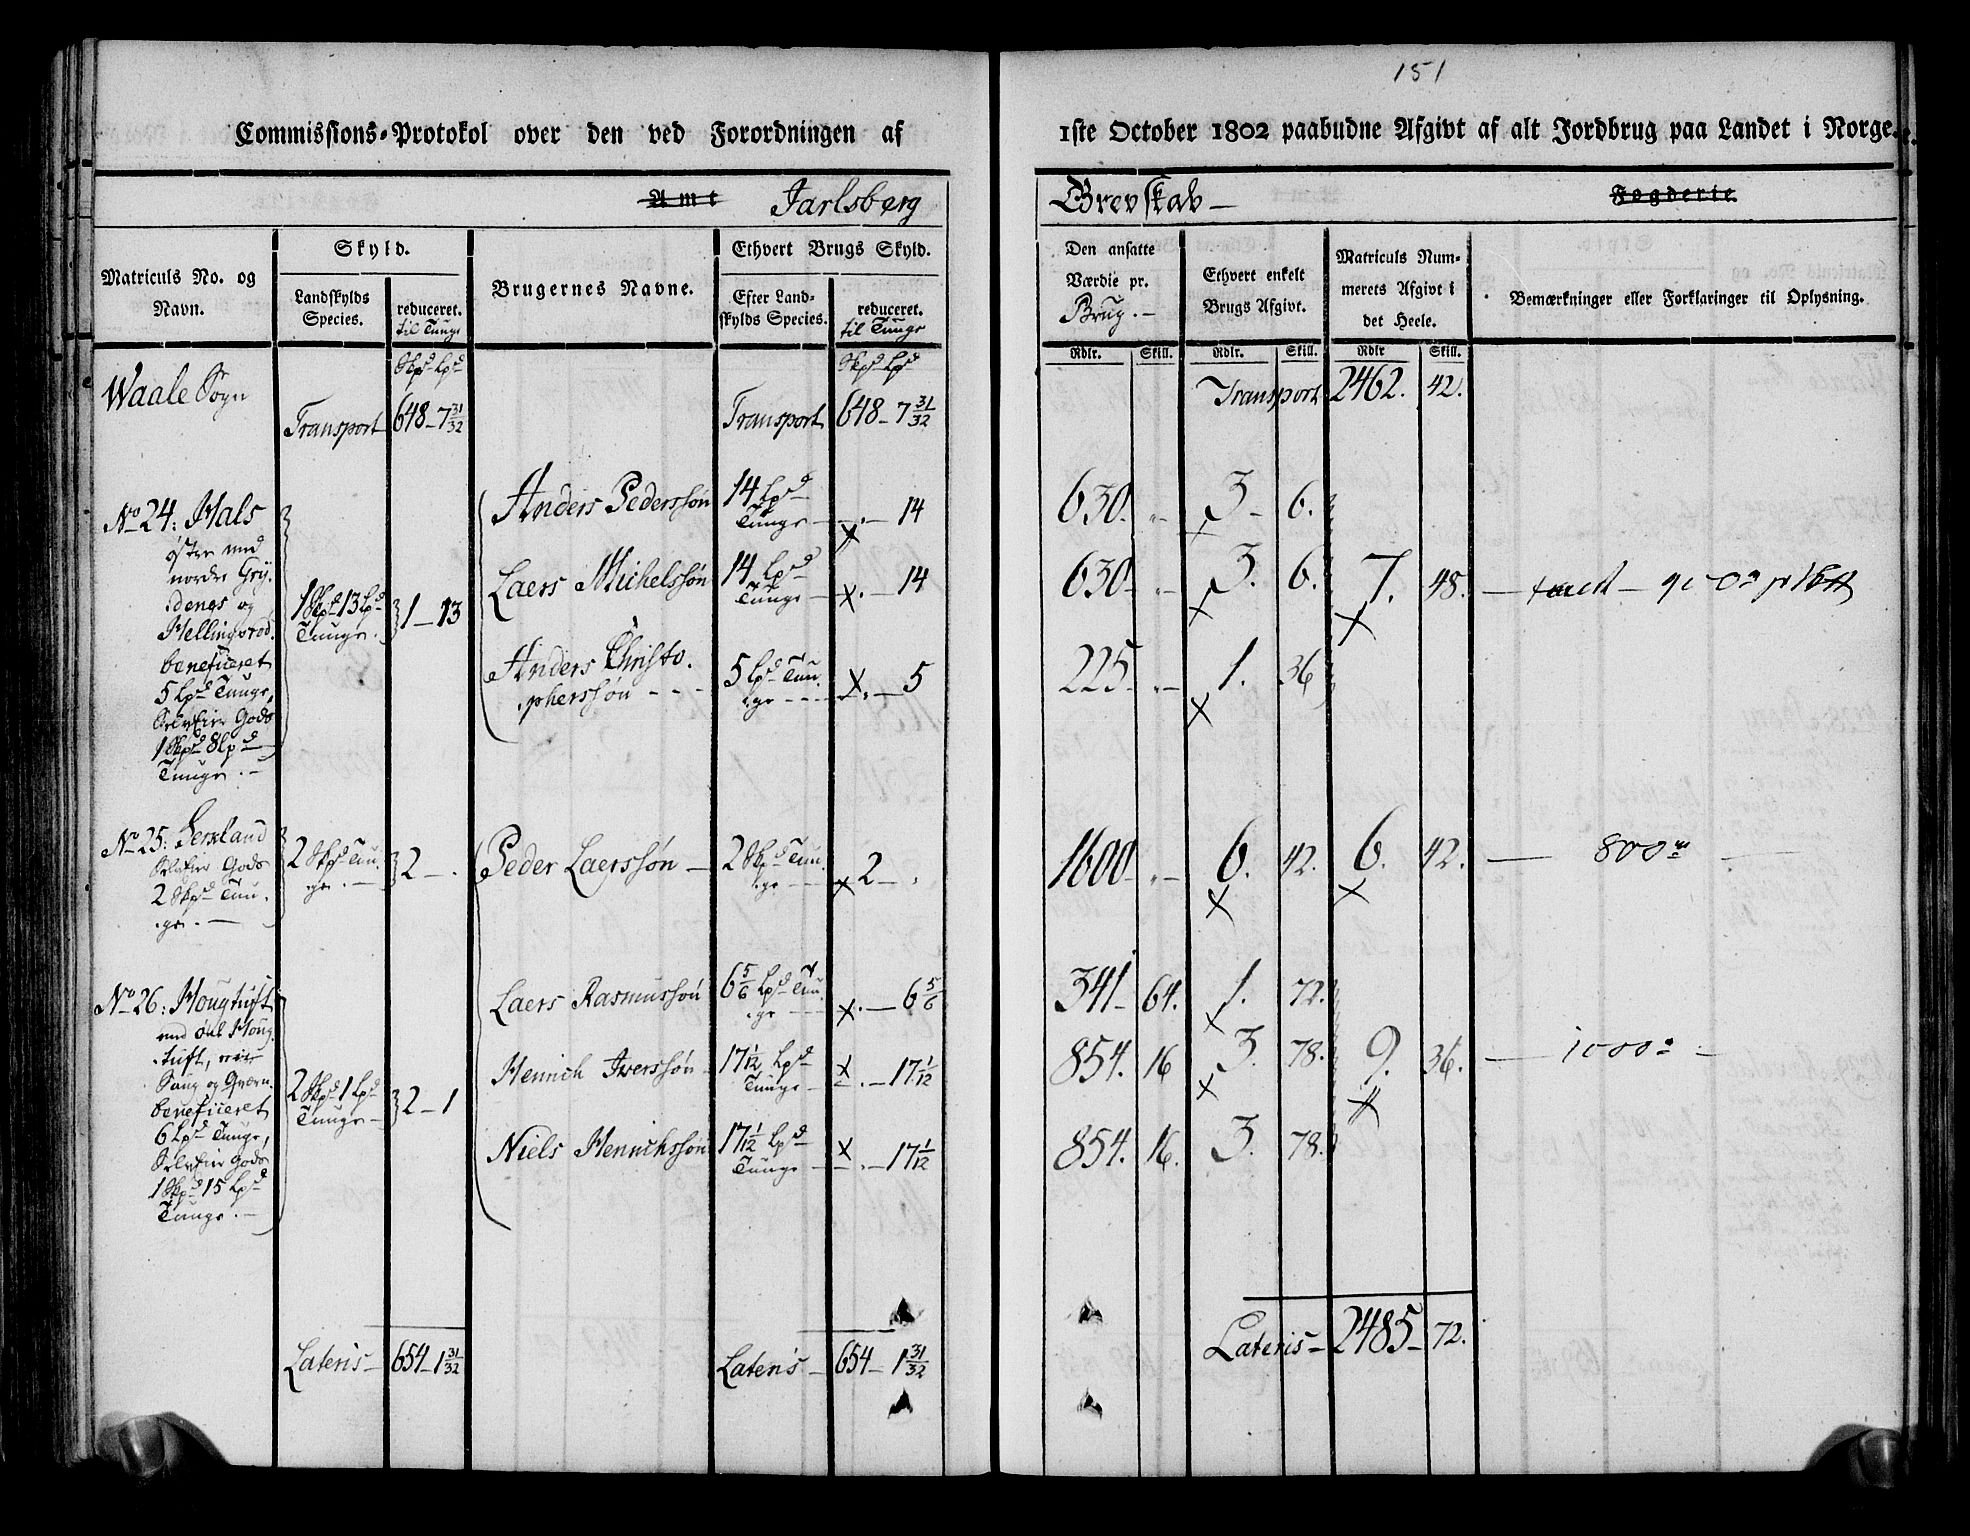 151
Commissions-Protokol over den ved Forordningen af
1ste October 1802 paabudne Afgivt af alt Jordbrug paa Landet i Norge.
Amt Jarlsberg
Grevskab
Fogderie.
Matriculs No. og
Navn.
Skyld.
Landskylds
Species.
reduceret.
til Tunge
Brugernes Navne.
Ethvert Brugs Skyld.
Efter Land-
skylds Species.
reduceret.
til Tunge
Den ansatte
Værdie pr.
Brug.
Ethvert enkelt
Brugs Afgivt.
Matriculs Num-
merets Afgivt i
det Heele.
Bemærkninger eller Forklaringer til Oplysning.
Skpd Lpd
Skpd Lpd
Rdlr. Skill. Rdlr. Skill. Rdlr Skill.
Waale Sogn
Transport 648 - 7 31/32
Transport 648 - 7 31/32
Transport 2462. 42.
No 24: Hals
østre med
nordre Gry.
.dengs og
Hellingsrød.
beneficeret
5 Lpd Tunge,
Selveier Gods
1 Skpd 8 Lpd
Tunge.
1 Skpd 13 Lpd
Tunge.
1 - 13
Anders Pederssøn 14 Lpd
Tunge - . - 14
630. " 3 - 6.
Laers Michelssøn 14 Lpd
Tunge - . - 14
630 - " 3. 6. 7. 48.
Anders Christo.
.pherssøn - - - 5 Lpd Tun.
.ge - - - . - 5
225 - " 1. 36
No 25:
Selveier Gods
2 Skpd Tun.
.ge.
2 Skpd Tun.
.ge.
2 - .
Peder Laerssøn - 2 Skpd Tun.
.ge - - 2 - .
1600 - " 6. 42. 6. 42. - 800
No 26: Hougtuft
med Øde Houg
.tuft, 
Saug og Qvern.
beneficeret
6 Lpd Tunge,
Selveier Gods
1 Skpd 15 Lpd
Tunge.
2 Skpd 1 Lpd
Tunge -
2 - 1
Laers Rasmussøn 6 5/6 Lpd Tun.
.ge - - . - 6 5/6
341 - 64. 1. 72.
Hennich Iverssøn - 17 1/12 Lpd
Tunge - . - 17 1/12
854. 16 3. 78. 9. 36. - 1000
Niels Hennichssøn 17 1/12 Lpd
Tunge - . - 17 1/12
854. 16. 3. 78.
Lateris - 654 - 1 31/32
Lateris - 654 - 1 31/32
Lateris - 2485 - 72.